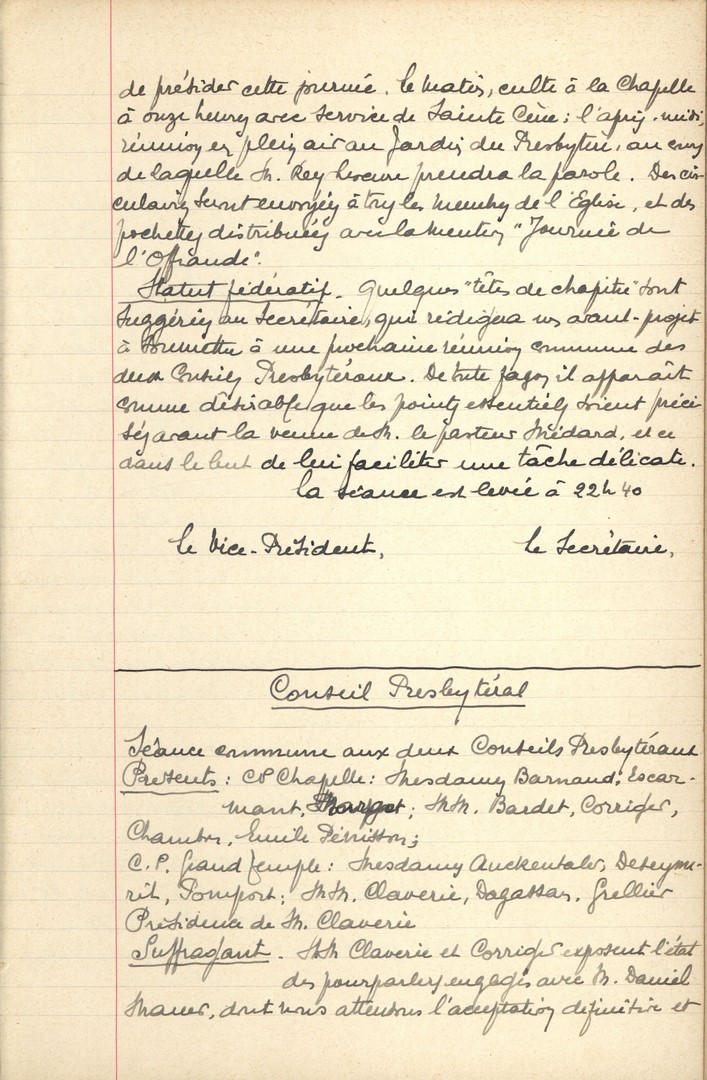 de présider cette journée. Le matin, culte à la Chapelle
à onze heures avec service de Sainte Cène ; l'après-midi,
réunion en plein air au Jardin du Presbytère, au cours
de laquelle M. Rey prendra la parole. Des cir-
culaires seront envoyées à tous les membres de l'Eglise, et des
pochettes distribuées avec la mention "Journée de
l'Offrande".
Statut fédératif. Quelques "têtes de chapitre" sont
suggérées au Secrétaire, qui rédigera un avant-projet
à soumettre à une prochaine réunion commune des
deux Conseils Presbytéraux. De toute façon il apparaît
comme désirable que les points essentiels soient préci-
sés avant la venue de M. le pasteur Médard, et ce
dans le but de lui faciliter une tâche délicate.
La séance est levée à 22h40
Le Vice-Président, Le Secrétaire,
Conseil Presbytéral
Séance commune aux deux Conseils Presbytéraux
Présents : CP Chapelle : Mesdames Barnaud, Escar-
mant, ; MM. Bardet, Corriger,
Emile Pénisson ;
C.P. Grand Temple : Mesdames Anckentaler,
Pomport ; MM. Claverie, Dagassan, Grellier
Présidence de M. Claverie
Suffragant. MM Claverie et Corriger exposent l'état
des pourparlers engagés avec M. Daniel
dont nous attendons l'acceptation définitive et